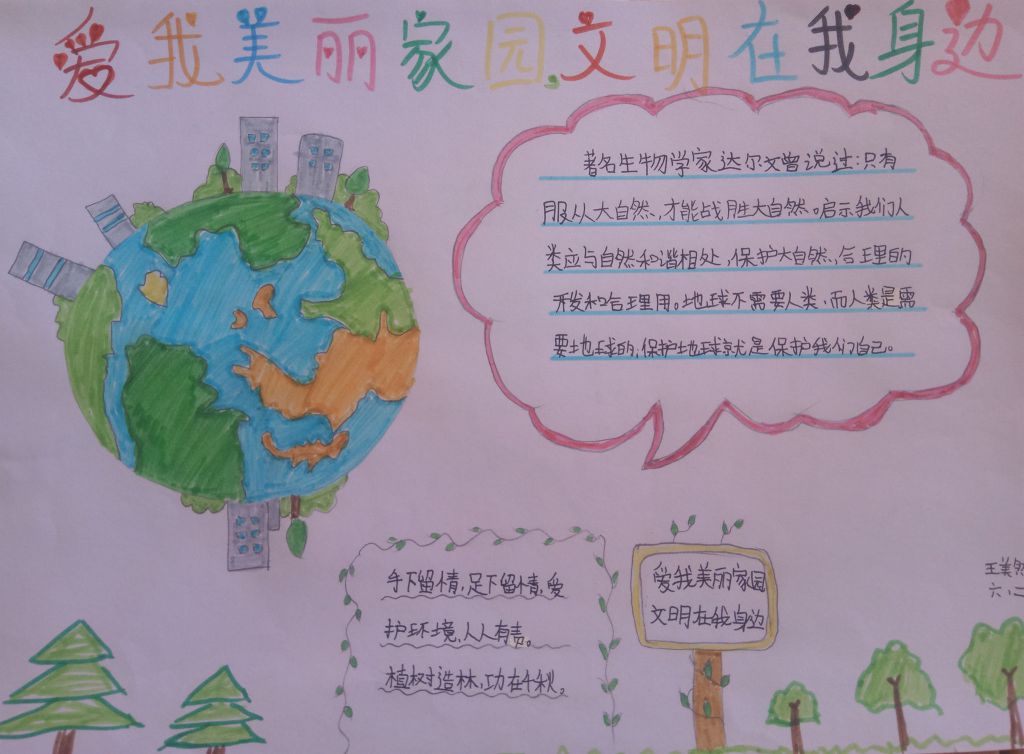 爱我美丽家园,文明在我身边
著名生物学家达尔文曾说过:只有
服从大自然,才能战胜大自然。启示我们人
类应与自然和谐相处,保护大自然,合理的
开发和合理用。地球不需要人类,而人类是需
要地球的,保护地球就是保护我们自己。
手下留情,足下留情,爱
护环境,人人有责。
植树造林,功在千秋。
爱我美丽家园
文明在我身边
王美
六、二